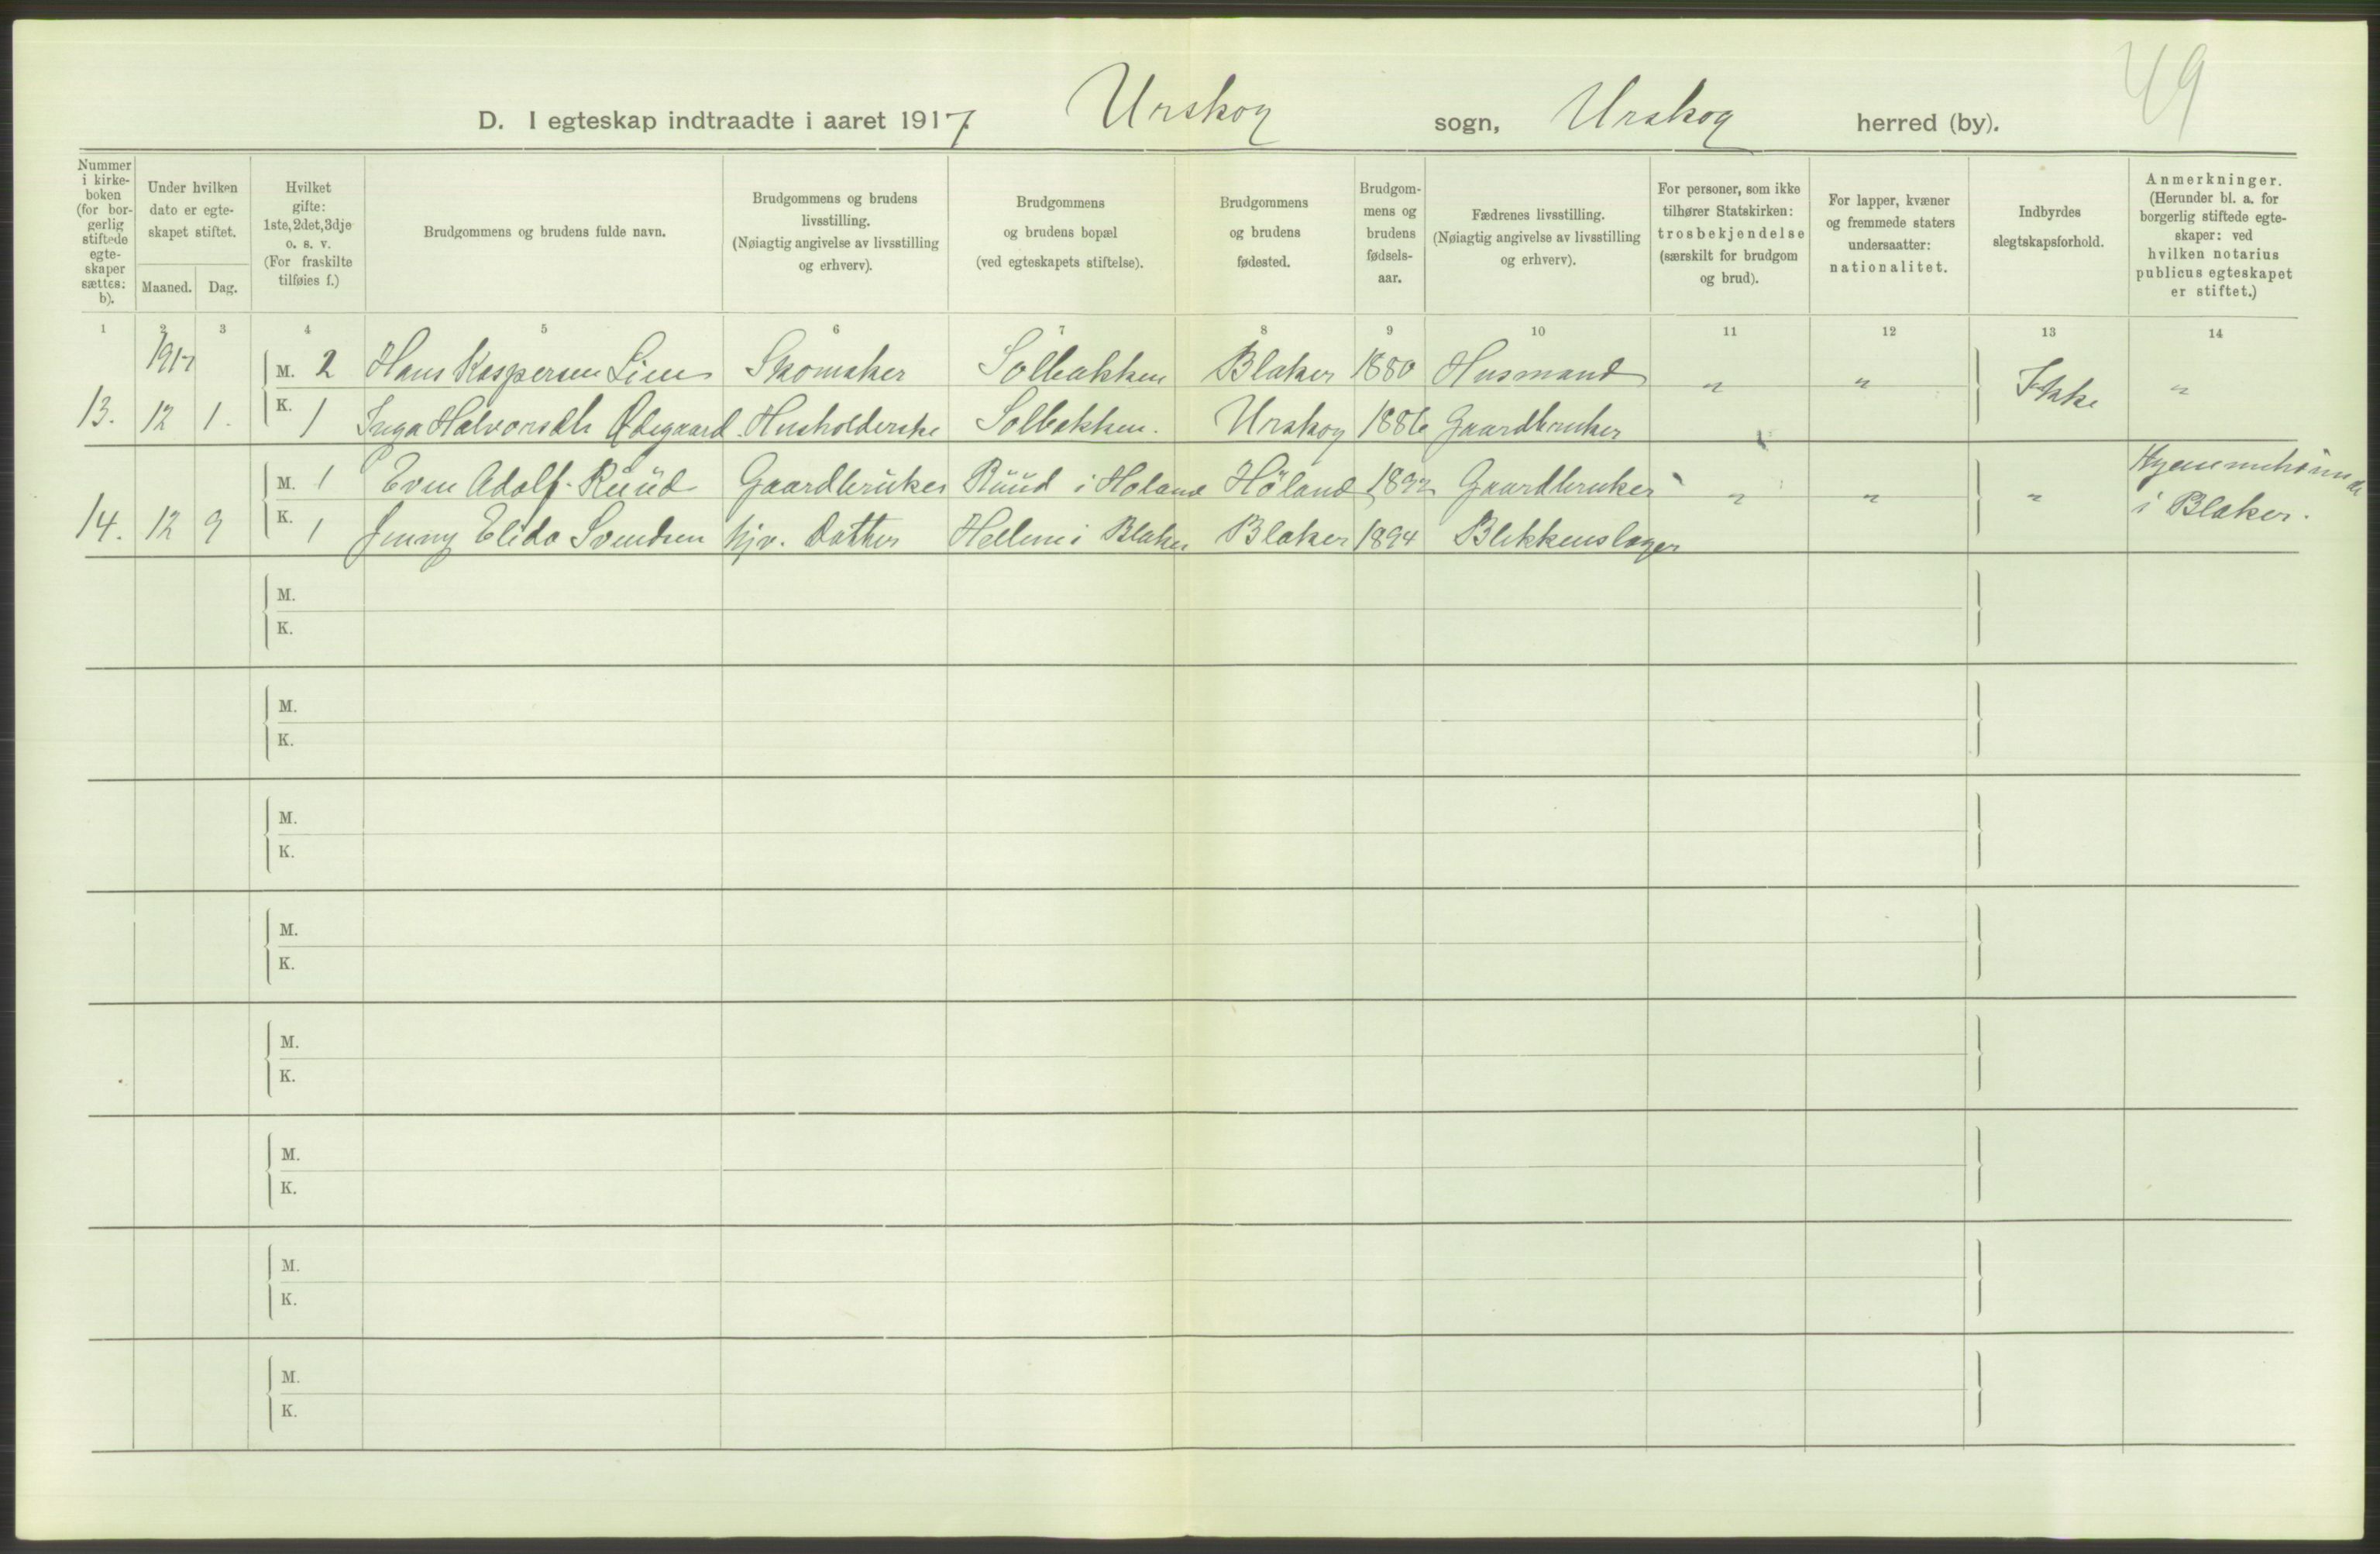 49
D. I egteskap indtraadte i aaret 1917. Urskog sogn, Urskog herred (by).
Nummer i kirke- boken (for bor- gerlig stiftede egte- skaper sættes: b).
Under hvilken dato er egte- skapet stiftet.
Maaned. Dag.
Hvilket gifte: 1ste, 2det, 3dje o. s. v. (For fraskilte tilføies f.)
Brudgommens og brudens fulde navn.
Brudgommens og brudens livsstilling. (Nøiagtig angivelse av livsstilling og erhverv).
Brudgommens og brudens bopæl (ved egteskapets stiftelse).
Brudgommens og brudens fødested.
Brudgom- mens og brudens fødsels- aar.
Fædrenes livsstilling. (Nøiagtig angivelse av livsstilling og erhverv).
For personer, som ikke tilhører Statskirken: trosbekjendelse (særskilt for brudgom og brud).
For lapper, kvæner og fremmede staters undersaatter: nationalitet.
Indbyrdes slegtskapsforhold.
Anmerkninger. (Herunder bl. a. for borgerlig stiftede egte- skaper: ved hvilken notarius publicus egteskapet er stiftet.)
1 2 3 4 5 6 7 8 9 10 11 12 13 14
1917 M. 2 Hans Kaspersen Lien Skomaker Solbakken Blaker 1880 Husmand " " Ikke "
13. 12 1. K. 1 Inga Halvorsdtr Ødegaard Husholderske Solbakken. Urskog 1886 Gaardbruker
M. 1 Even Adolf Ruud Gaardbruker Ruud i Høland Høland 1892 Gaardbruker " " " Hjemmehørende
14. 12 9 K. 1 Jenny Elida Svendsen hjv. Datter Hellem i Blaker Blaker 1894 Blikkenslager i Blaker.
M.
K.
M.
K.
M.
K.
M.
K.
M.
K.
M.
K.
M.
K.
M.
K.